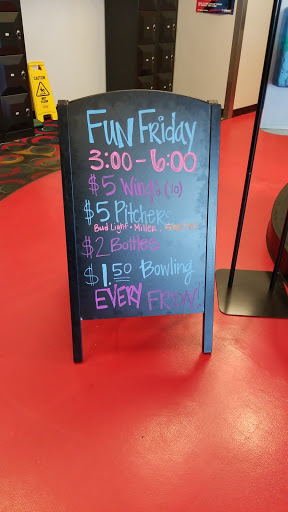 FUN Friday
3:00 - 6:00
$5 Wings (10)
$5 Pitchers
Bud Light • Miller
$2 Bottles
$1.50 Bowling
EVERY
CAUTION